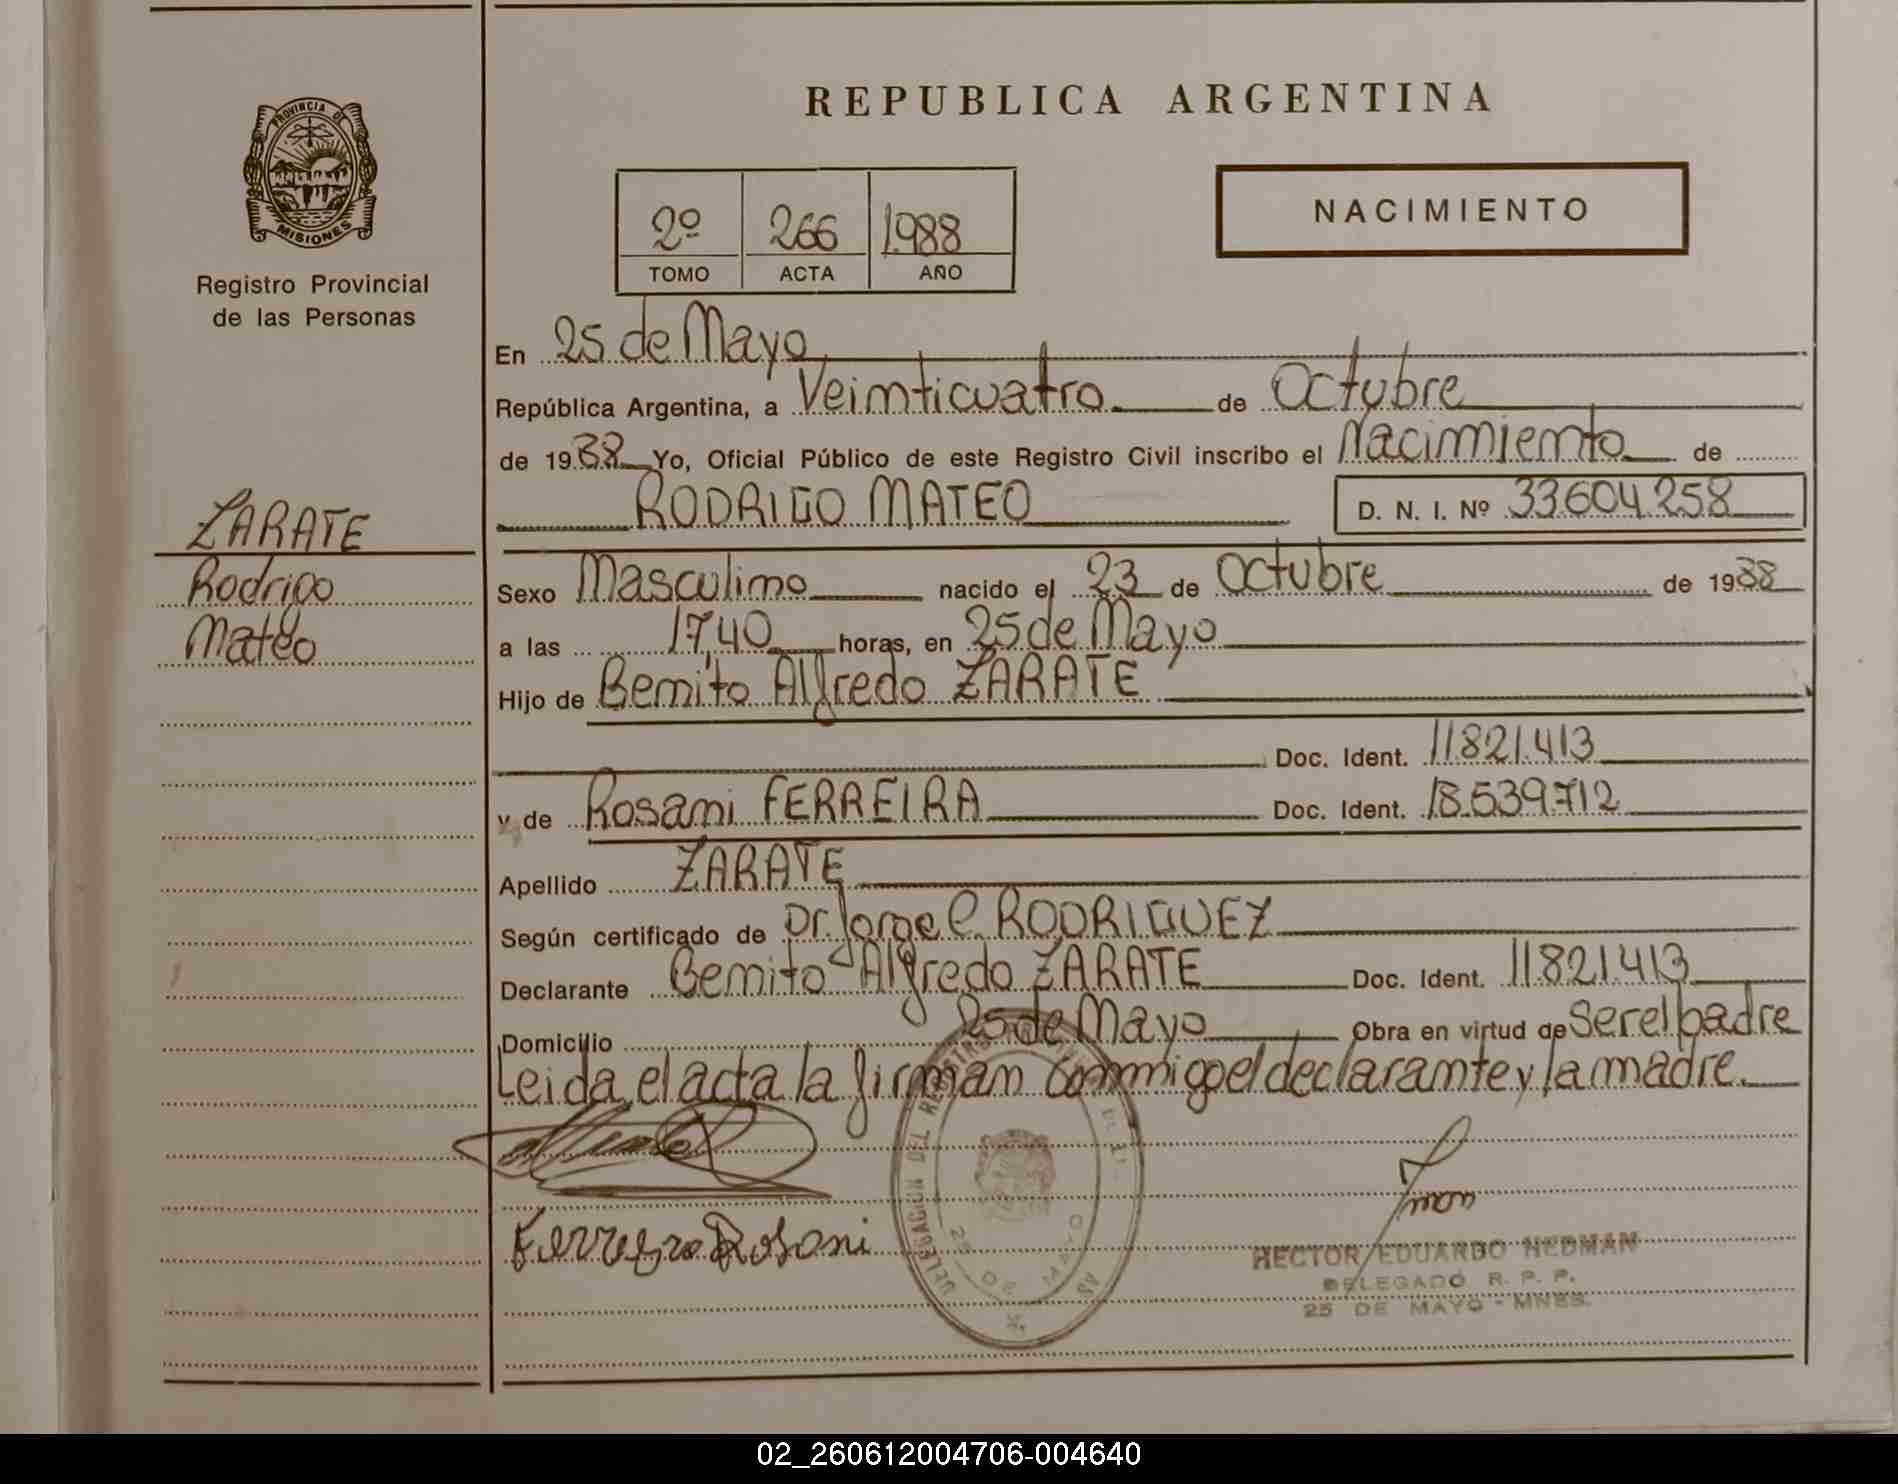 REPUBLICA ARGENTINA
PROVINCIA DE
MISIONES
Registro Provincial
de las Personas
2º 266 1.988
TOMO ACTA AÑO
NACIMIENTO
En 25 de Mayo
República Argentina, a Veinticuatro de Octubre
de 1988 Yo, Oficial Público de este Registro Civil inscribo el Nacimiento de
RODRIGO MATEO D. N. I. Nº 33.604.258
ZARATE
Rodrigo
Mateo
Sexo Masculino nacido el 23 de Octubre de 1988
a las 17,40 horas, en 25 de Mayo
Hijo de Benito Alfredo ZARATE
Doc. Ident. 11.821.413
y de Rosani FERREIRA Doc. Ident. 18.539.712
Apellido ZARATE
Según certificado de Dr. Jorge C. RODRIGUEZ
Declarante Benito Alfredo ZARATE Doc. Ident. 11.821.413
Domicilio 25 de Mayo Obra en virtud de Ser el padre
Leida el acta la firman conmigo el declarante y la madre.
Ferreira Rosani
DELEGACION DEL REGISTRO
25 DE MAYO
HECTOR EDUARDO HEDMAN
DELEGADO R. P. P.
25 DE MAYO - MNES.
02_260612004706-004640